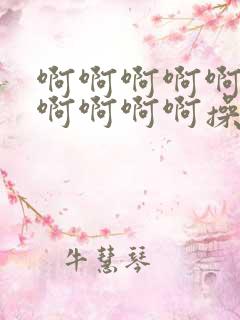 啊啊啊啊啊
啊啊啊啊操
牛慧琴